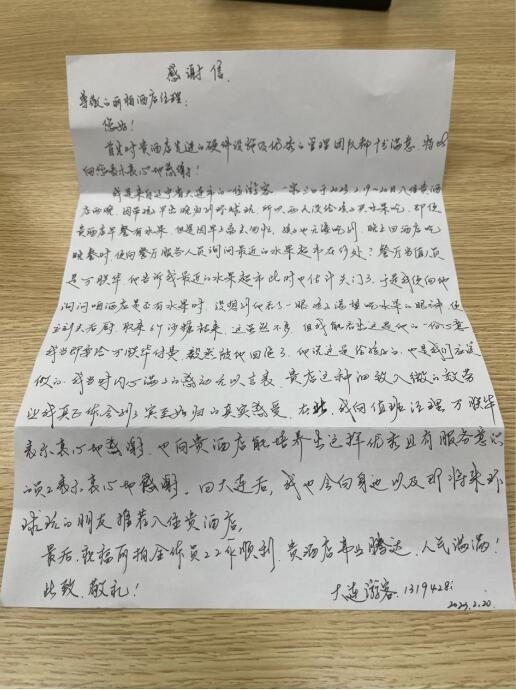 感谢信.
尊敬的丽柏酒店经理:
您好!
首先对贵酒店先进的硬件设施及优秀的管理团队都十分满意,特此
向您表示衷心地感谢!
我是来自辽宁省大连市的一位游客,一家三口于2023.2.19~20日入住贵酒
店两晚,因早晚
所以两人没给孩子买水果吃,即使
贵酒店早餐有水果,但是因早上
也无法吃到,晚上回酒店吃
晚餐时,便向餐厅服务人员询问最近的水果超市在何处?餐厅当值人员
是万联华,他告诉我最近的水果超市此时也估计关门了,于是我便向他
询问咱酒店是否有水果时,没想到他看了一眼孩子渴望吃水果的眼神,便
立刻去后厨取来6个沙糖桔来,这虽然不多,但我能看出这是他的一份心意
我当即要给万联华付费,毅然被他回绝了,他说这是给孩子的,也是我们应该
做的,我当时内心满满的感动无以言表,贵店这种细致入微的服务
让我真正体会到了宾至如归的真实感受,在此,我向值班经理万联华
表示衷心地感谢,也向贵酒店能培养出这样优秀且有服务意识
的员工表示衷心地感谢。回大连后,我也会向身边以及即将来环
球玩的朋友推荐入住贵酒店,
最后,祝福丽柏全体员工工作顺利,贵酒店事业腾达,人气满满!
此致,敬礼!
大连游客.1319428
2023.2.20.